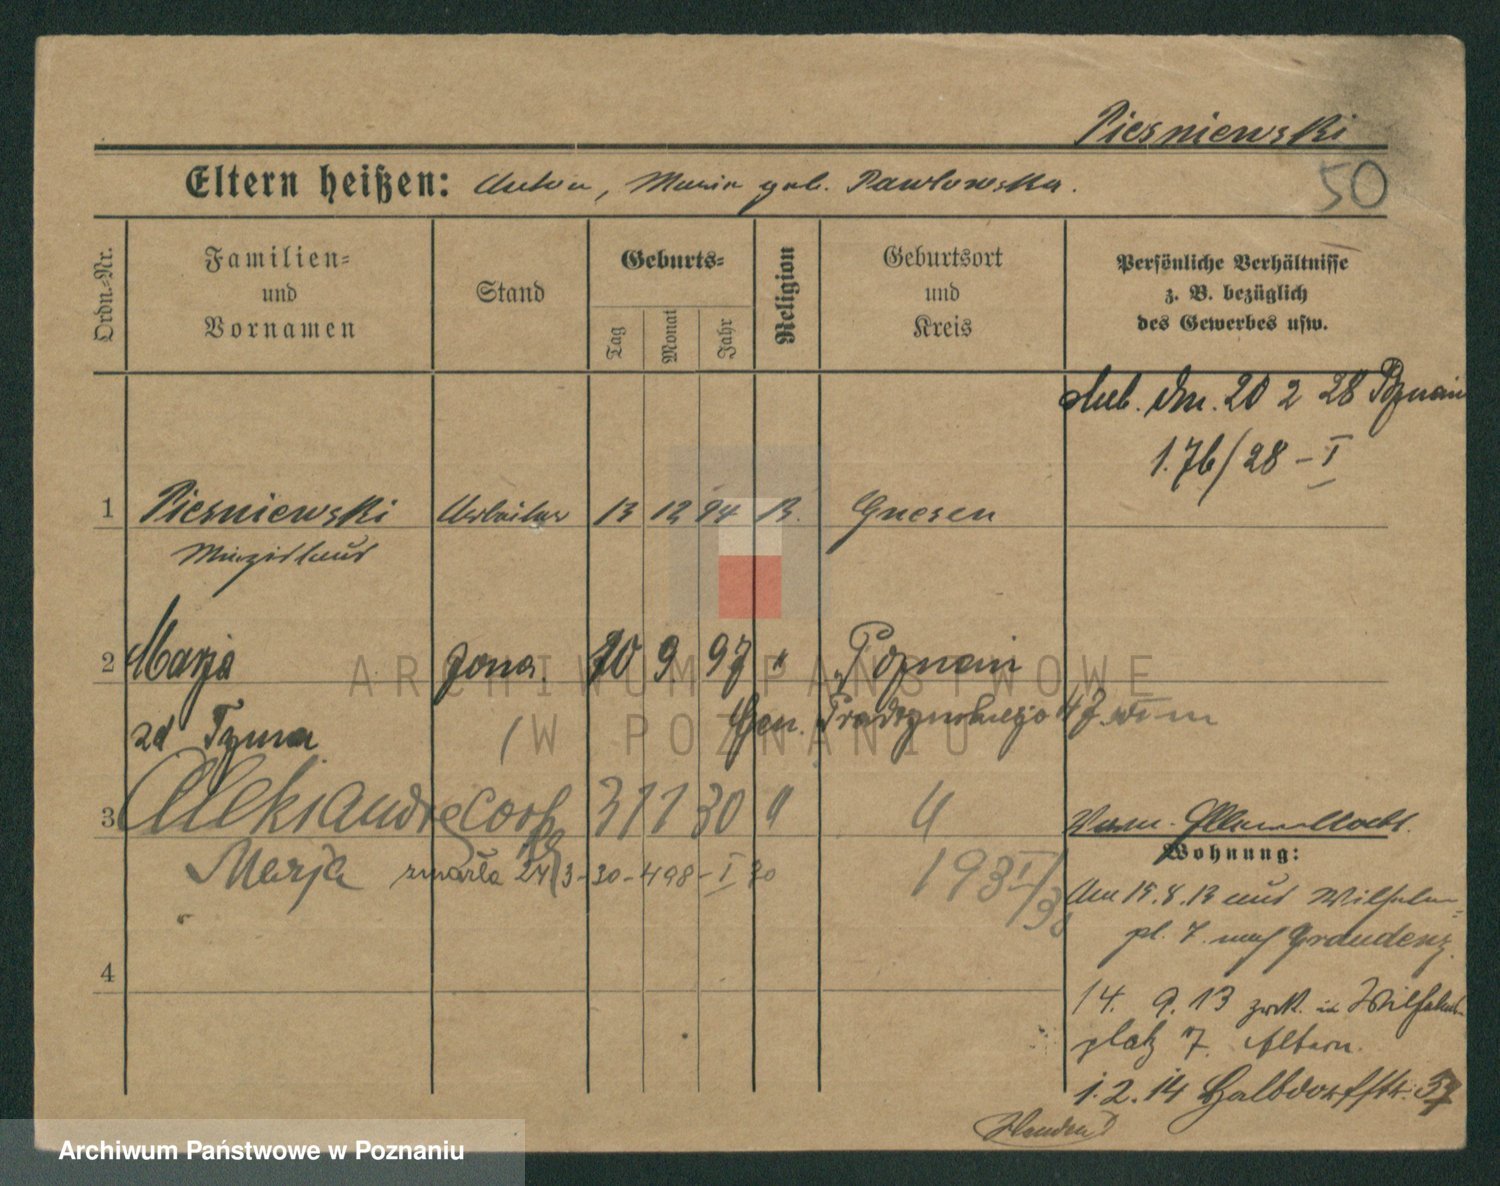 Piesniewski
50
Eltern heißen: Anton, Maria geb. Pawłowska.
Ordn.-Nr.
Familien- und Vornamen
Stand
Geburts-
Tag
Monat
Jahr
Religion
Geburtsort und Kreis
Persönliche Verhältnisse
z. B. bezüglich
des Gewerbes usw.
20 2 28 Poznań
1.76/28 – I
1 Piesniewski Arbeiter 13 12 94 Gnesen
2 Marja żona 20 9 97 " Poznań
zd Tyma
Gen. Prądzyńskiego 47
3 Aleksandra córka 31 1 30 " "
Marja zmarła 24/3-30-498-I 30
Wohnung:
Am 15.8.13 aus Wilhelm-
pl. 7 nach Graudenz.
14. 9. 13 zurk. in Wilhelms-
platz 7. Eltern.
1.2.14 Halbdorfstr. 37
4
ARCHIWUM PAŃSTWOWE
W POZNANIU
Archiwum Państwowe w Poznaniu